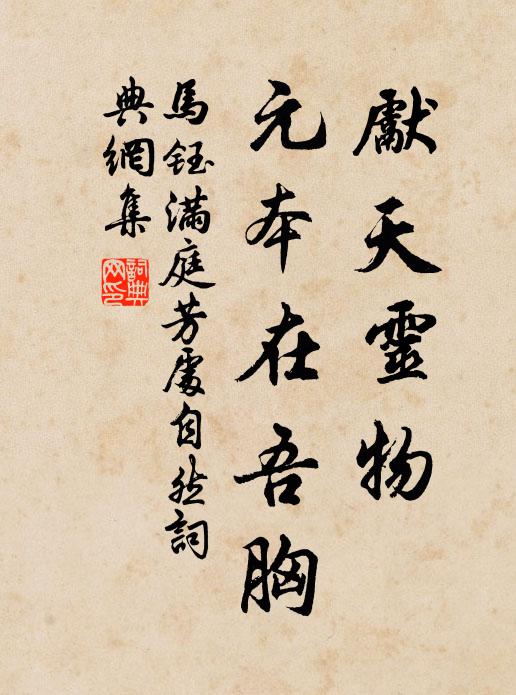 獻天靈物
元本在吾胸
馬鈺滿庭芳處自然詞
典網集
詞典網印